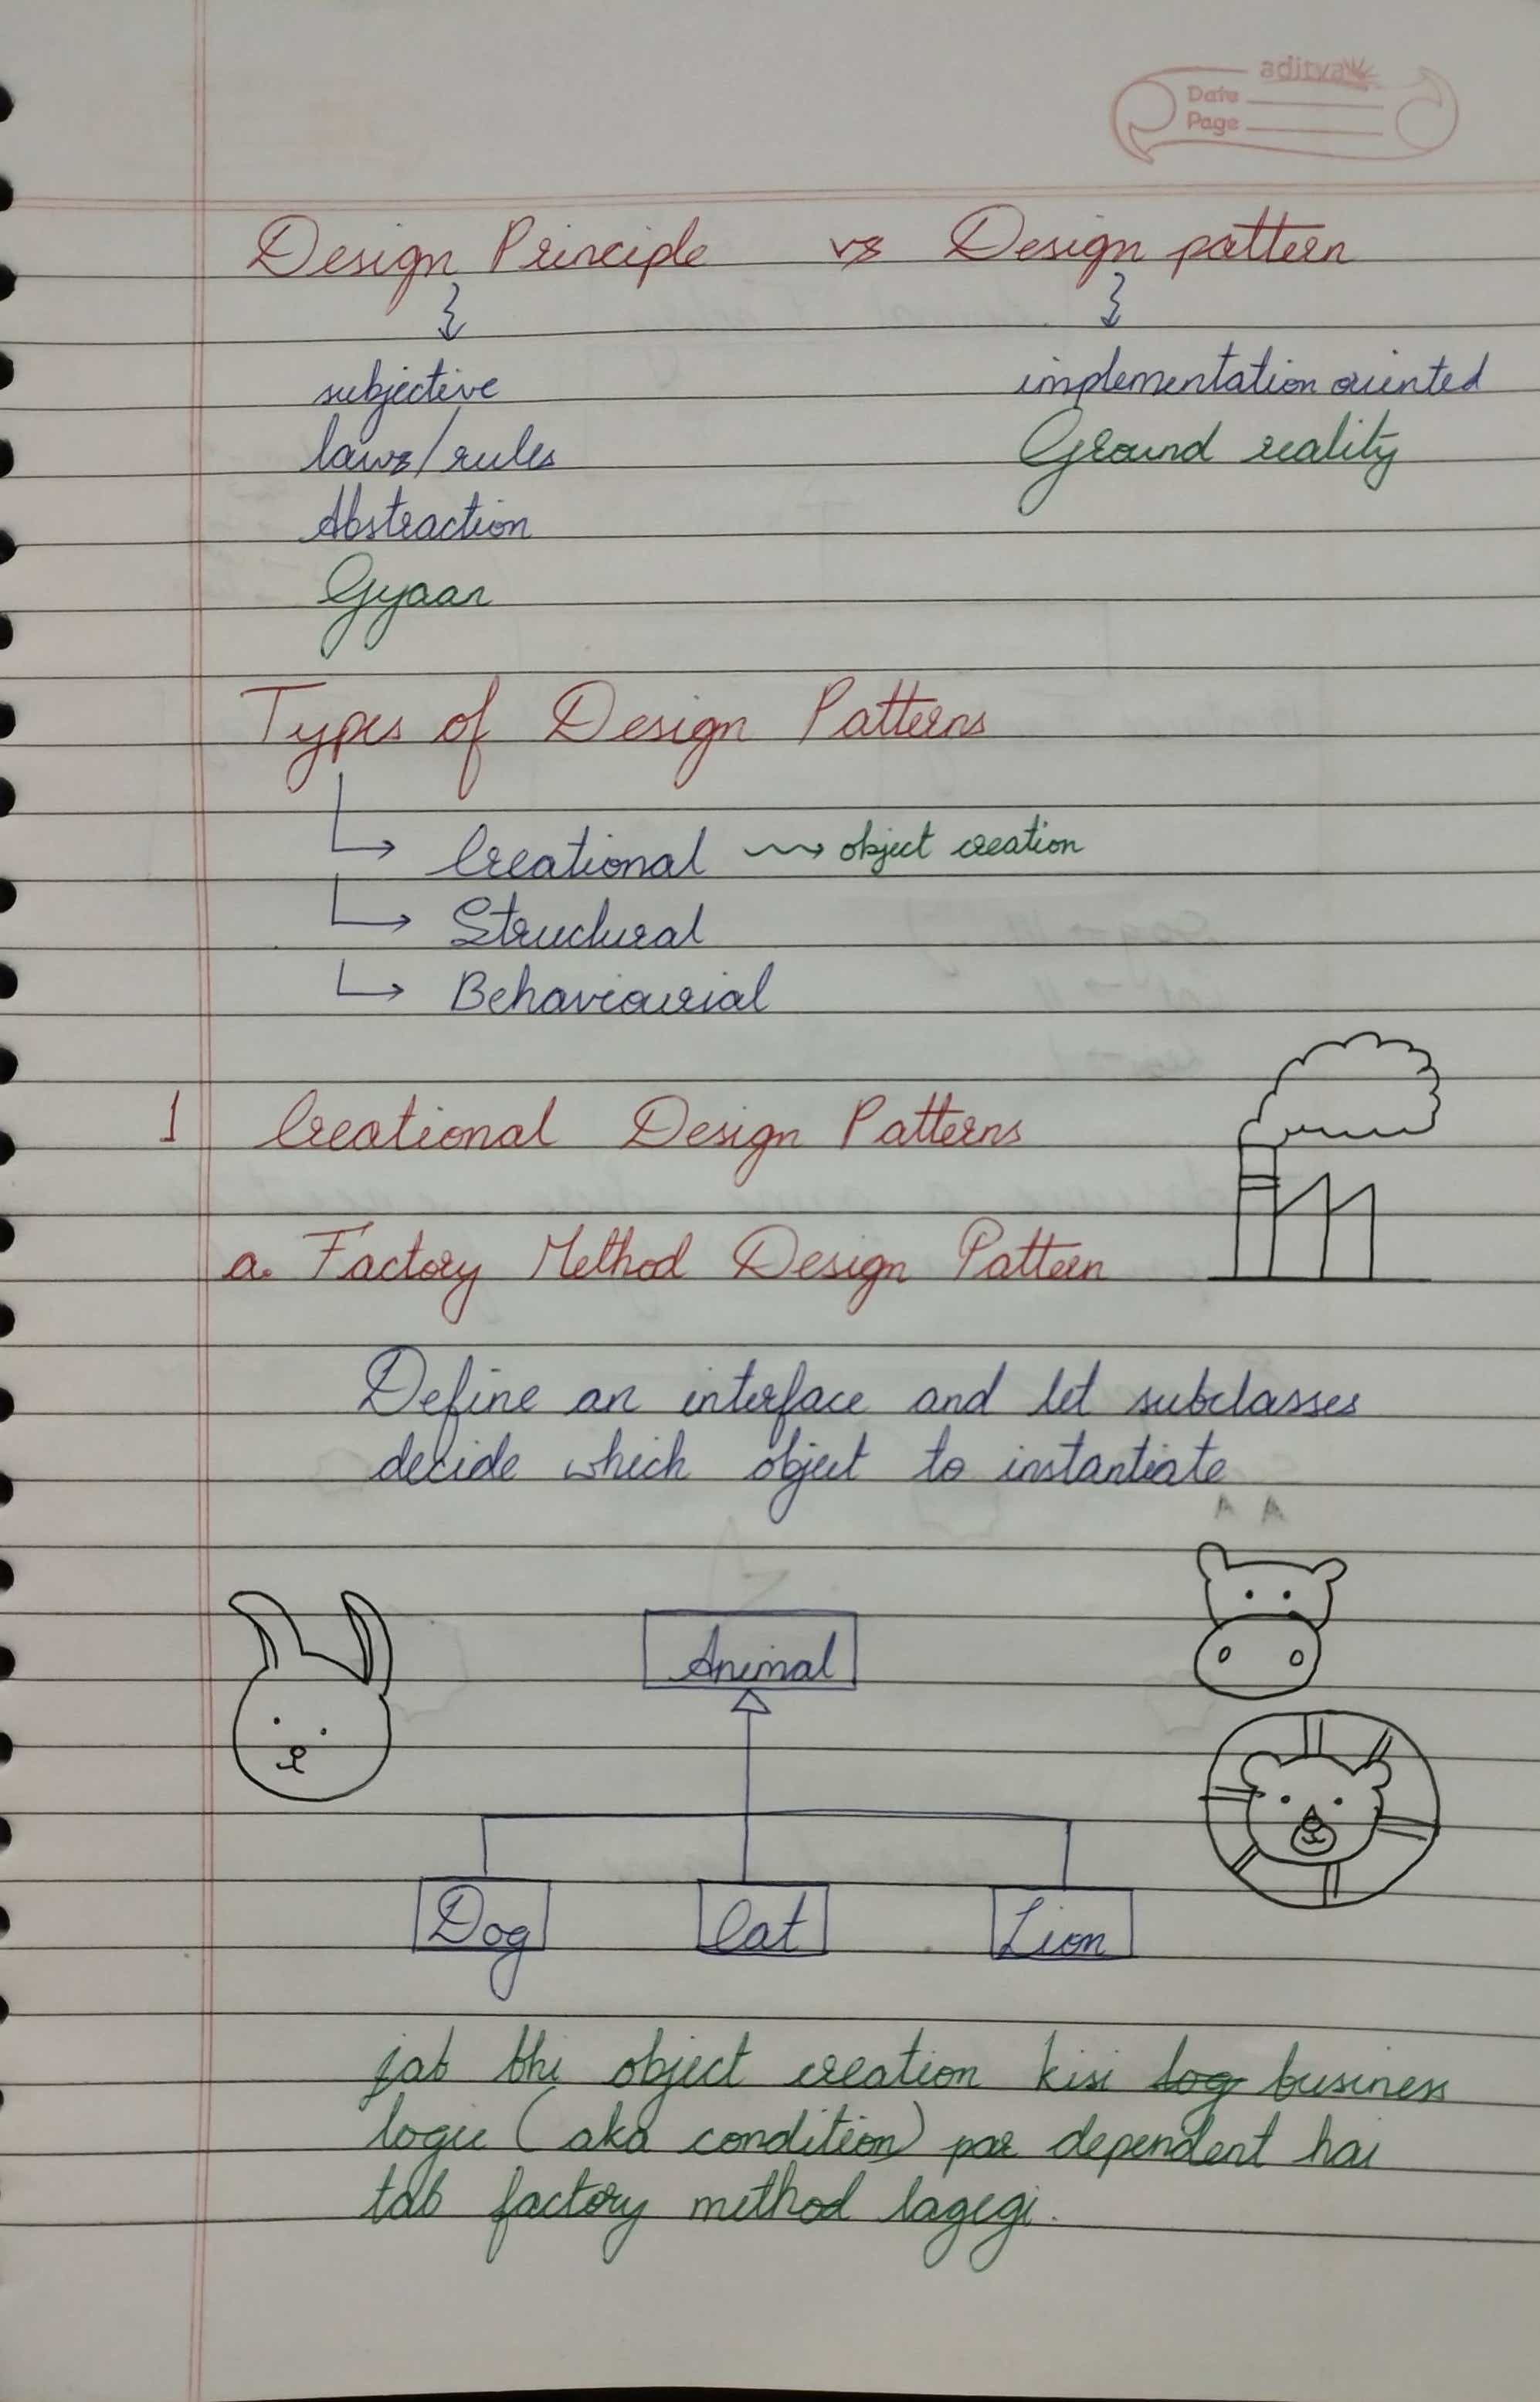 aditya
Date
Page
Design Principle vs Design pattern
subjective implementation oriented
laws/rules Ground reality
Abstraction
Gyaan
Types of Design Patterns
Creational object creation
Structural
Behaviourial
1 Creational Design Patterns
a. Factory Method Design Pattern
Define an interface and let subclasses
decide which object to instantiate
Animal
Dog Cat Lion
jab bhi object creation kisi log business
logic (aka condition) par dependent hai
tab factory method lagegi.